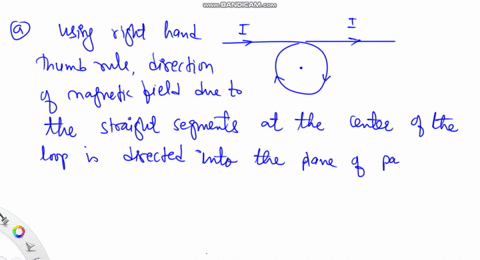 www.BANDICAM.com
(a) Using right hand I I
thumb rule, direction
of magnetic field due to
the straight segments at the center of the
loop is directed into the plane of pa